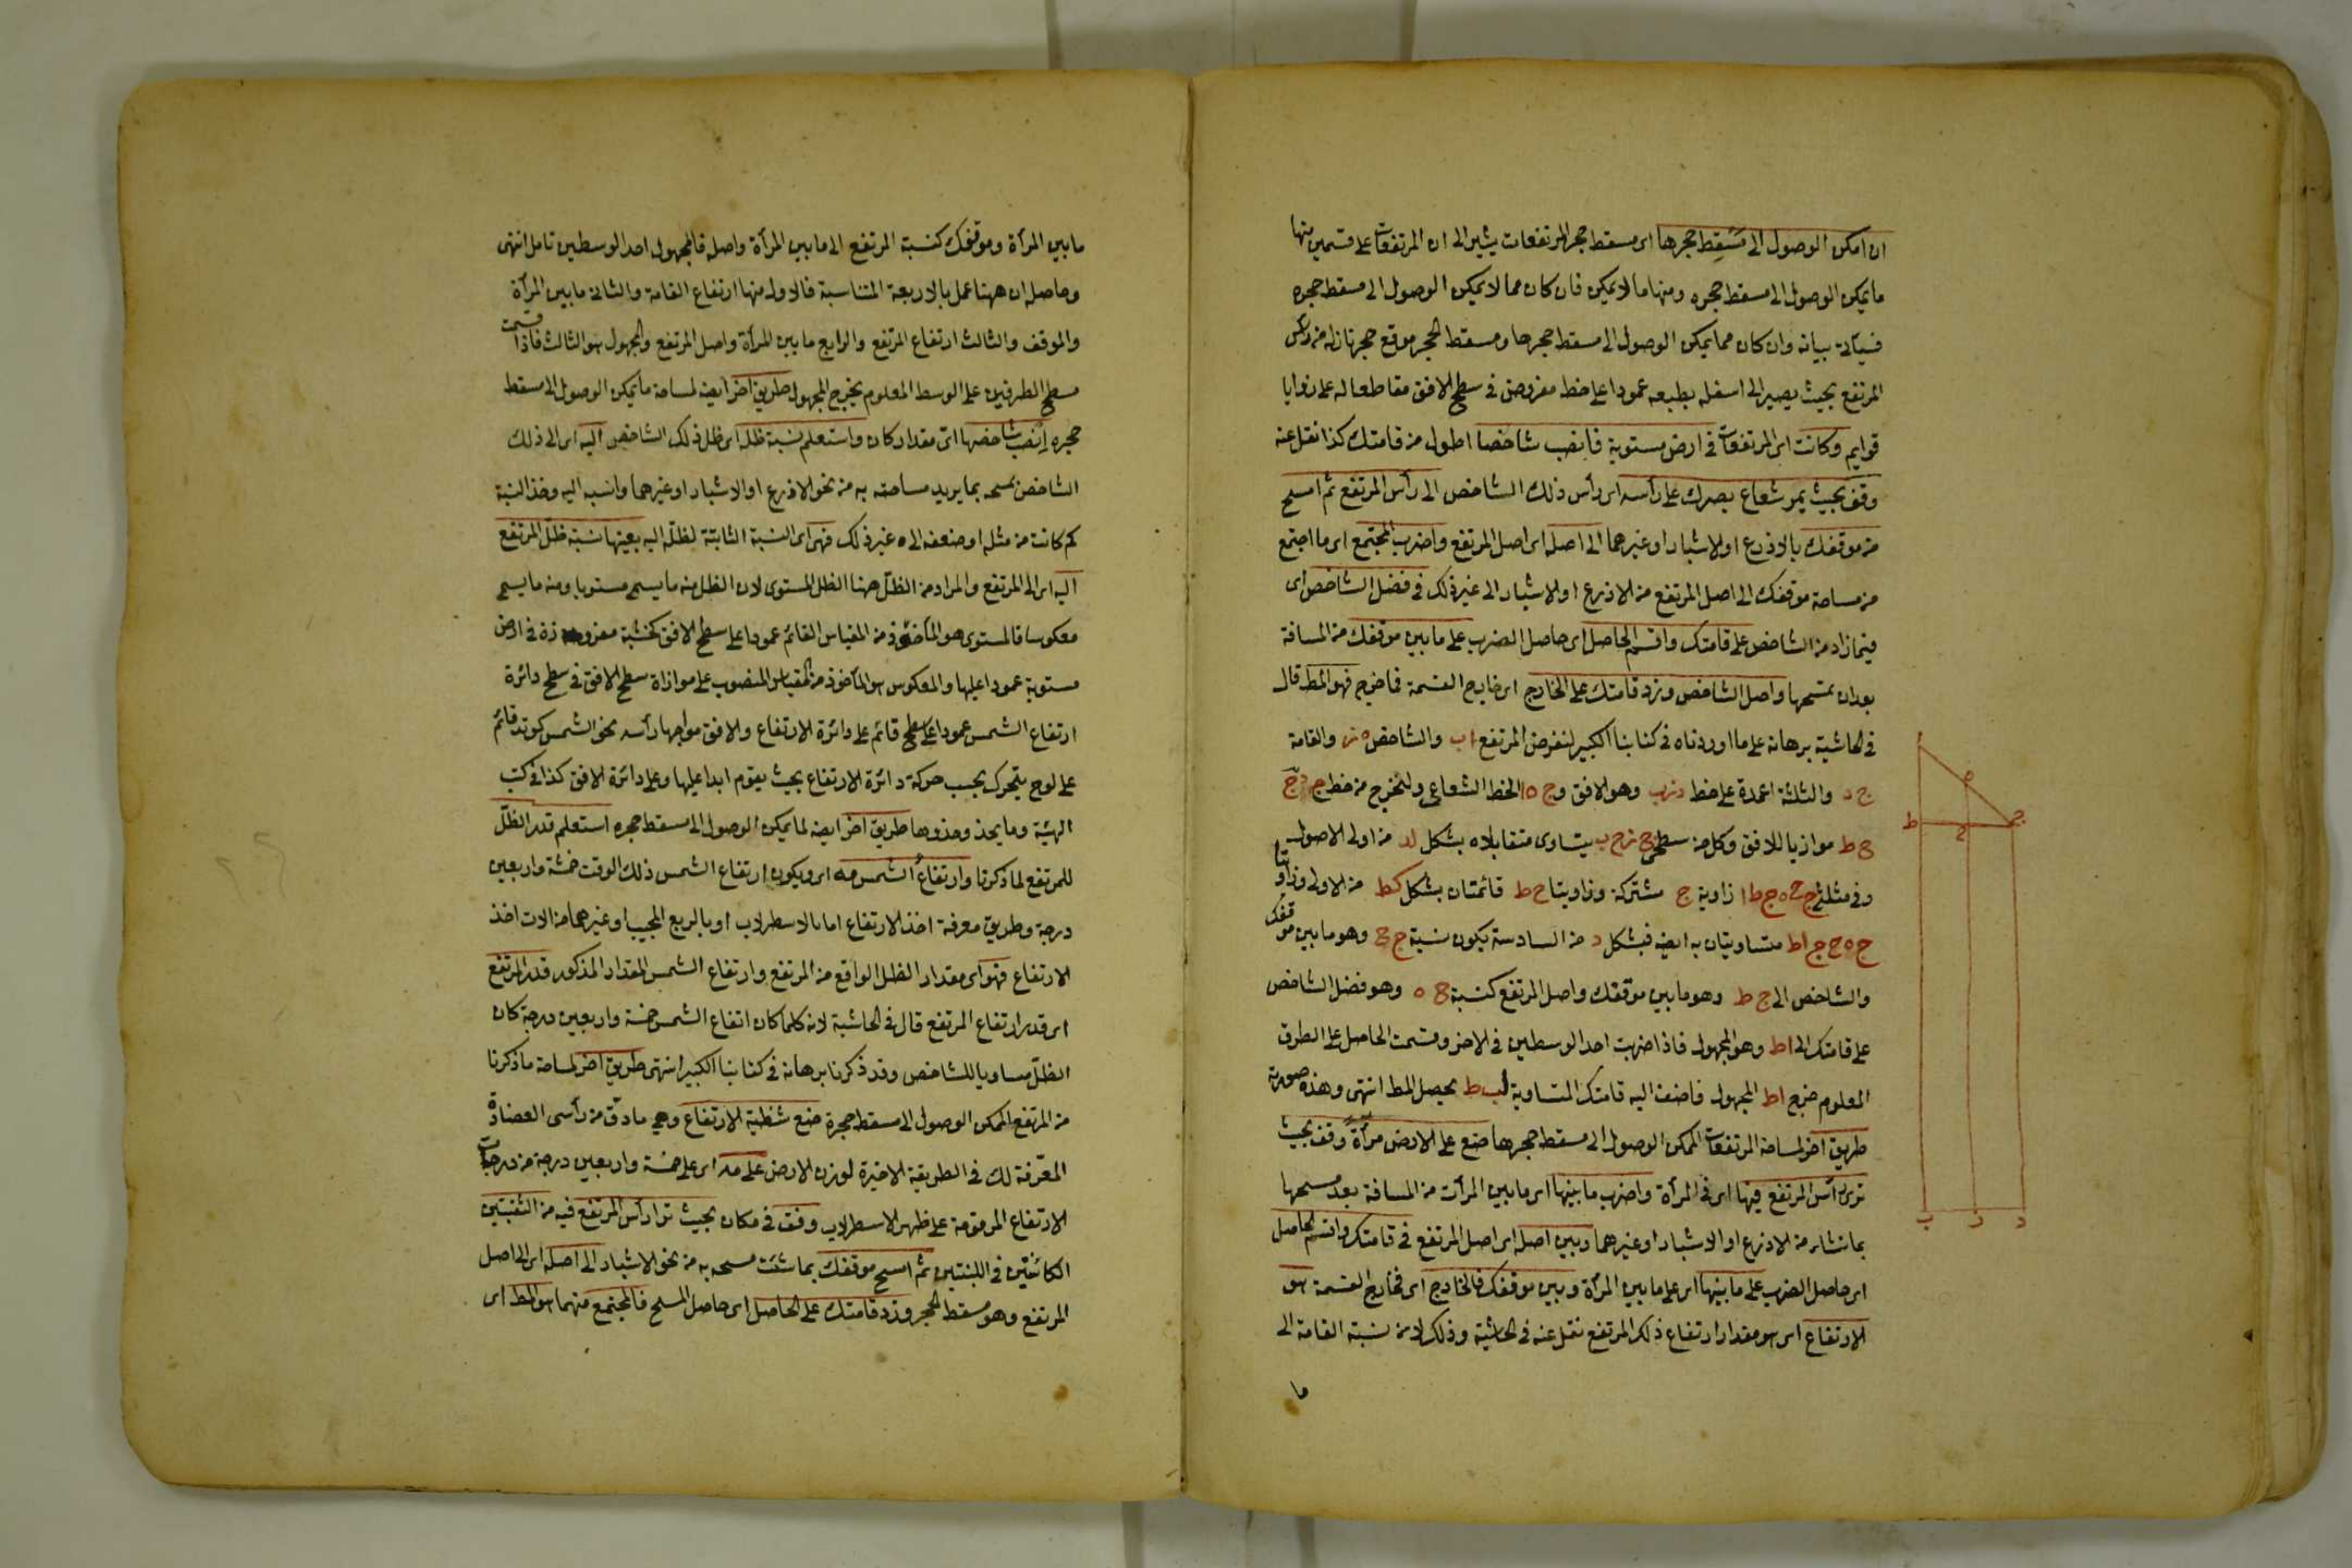 ان امكن الوصول الى مسقط حجرها اى مسقط حجر المرتفعات يشير الى ان المرتفعات على قسمين منها
ما يمكن الوصول الى مسقط حجره ومنها ما لا يمكن فان كان مما لا يمكن الوصول الى مسقط حجره
فسيأتى بيانه وان كان مما يمكن الوصول الى مسقط حجرها ومسقط الحجر موقع حجر نازل من رأس
المرتفع بحيث يصير الى اسفله بطبعه عمودا على خط مفروض فى سطح الافق مقاطعا له على زوايا
قوايم وكانت اى المرتفعات فى ارض مستوية فانصب شاخصا اطول من قامتك كذا نقل عنه
وقف بحيث يمر شعاع بصرك على رأسه اى رأس ذلك الشاخص الى رأس المرتفع ثم امسح
من موقفك بالاذرع او الاشبار او غيرهما الى اصله اى اصل المرتفع واضرب المجتمع اى ما اجتمع
من مساحة موقفك الى اصل المرتفع من الاذرع او الاشبار الى غير ذلك فى فضل الشاخص اى
فيما زاد من الشاخص على قامتك واقسم الحاصل اى حاصل الضرب على ما بين موقفك من المسافة
بعد ان تمسحها واصل الشاخص وزد قامتك على الخارج اى خارج القسمة فما خرج فهو المط قال
فى الحاشية برهانه على ما اوردناه فى كتابنا الكبير لنفرض المرتفع اب والشاخص ه ز والقامة
ج د والثلثة اعمدة على خط دزب وهو الافق وج ه ا الخط الشعاعى ولنخرج من خط ج د ج
ح ط موازيا للافق وكل من سطحى ح ز ح ب يتساوى متقابلاه بشكل لد من اولى الاصول
وفى مثلثى ج ح ه ج ط ا زاوية ج مشتركة وزاويتا ح ط قائمتان بشكل كط من الاولى وزاويتا
ج ه ح ج اط متساويتان به ايضا فبشكل د من السادسة يكون نسبة ج ح وهو ما بين موقفك
والشاخص الى ج ط وهو ما بين موقفك واصل المرتفع كنسبة ح ه وهو فضل الشاخص
على قامتك الى اط وهو المجهول فاذا ضربت احد الوسطين فى الاخر وقسمت الحاصل على الطرف
المعلوم خرج اط المجهول فاضف اليه قامتك المتساوية لب ط يحصل المط انتهى وهذه صورته
طريق اخر لمساحة المرتفعات الممكن الوصول الى مسقط حجرها ضع على الارض مرآة وقف بحيث
ترى رأس المرتفع فيها اى فى المرآة واضرب ما بينها اى ما بين المرآت من المسافة بعد مسحها
بما تشاء من الاذرع او الاشبار او غيرهما وبين اصله اى اصل المرتفع فى قامتك واقسم الحاصل
اى حاصل الضرب على ما بينها اى على ما بين المرآة وبين موقفك فالخارج اى فخارج القسمة هو
الارتفاع اى هو مقدار ارتفاع ذلك المرتفع نقل عنه فى الحاشية وذلك لان نسبة القامة الى
ما
ا
ه
ج
ح
ط
ب
ز
د
ما بين المرآة وموقفك كنسبة المرتفع الى ما بين المرآة واصله فالمجهول احد الوسطين تامل انتهى
وحاصله ان ههنا عمل بالاربعة المتناسبة فالاول منها ارتفاع القامة والثانى ما بين المرآة
والموقف والثالث ارتفاع المرتفع والرابع ما بين المرآة واصل المرتفع والمجهول هو الثالث فاذا قسمت
مسطح الطرفين على الوسط المعلوم يخرج المجهول طريق اخر ايضا لمساحة ما يمكن الوصول الى مسقط
حجره انصب شاخصا اى مقدار كان واستعلم نسبة ظله اى ظل ذلك الشاخص اليه اى الى ذلك
الشاخص بمسحه بما يريد مساحته به من نحو الاذرع او الاشبار او غيرهما وانسبه اليه وخذ النسبة
كم كانت من مثله او ضعفه الى غير ذلك فهى اى النسبة الثابتة لظله اليه بعينها نسبة ظل المرتفع
اليه اى الى المرتفع والمراد من الظل ههنا الظل المستوى لان الظل منه ما يسمى مستويا ومنه ما يسمى
معكوسا فالمستوى هو المأخوذ من المقياس القائم عمودا على سطح الافق كخشبة مغروزة فى ارض
مستوية عمودا عليها والمعكوس هو المأخوذ من المقياس المنصوب على موازاة سطح الافق فى سطح دائرة
ارتفاع الشمس عمودا على سطح قائم على دائرة الارتفاع والافق مواجها رأسه نحو الشمس كوتد قائم
على لوح يتحرك بحسب حركة دائرة الارتفاع بحيث يقوم ابدا عليها وعلى دائرة الافق كذا فى كتب
الهيئة وما يحذو حذوها طريق اخر ايضا لما يمكن الوصول الى مسقط حجره استعلم قدر الظل
للمرتفع لما ذكرنا وارتفاع الشمس مه اى ويكون ارتفاع الشمس ذلك الوقت خمسة واربعين
درجة وطريق معرفة اخذ الارتفاع اما بالاسطرلاب او بالربع المجيب او غيرهما من الات اخذ
الارتفاع فهو اى مقدار الظل الواقع من المرتفع وارتفاع الشمس المقدار المذكور قدر المرتفع
اى قدر ارتفاع المرتفع قال فى الحاشية لانه كلما كان ارتفاع الشمس خمسة واربعين درجة كان
الظل مساويا للشاخص وقد ذكرنا برهانه فى كتابنا الكبير انتهى طريق اخر لمساحة ما ذكرنا
من المرتفع الممكن الوصول الى مسقط حجره ضع شظية الارتفاع وهى ما دق من رأسى العضادة
المعرفة لك فى الطريقة الاخيرة لوزن الارض على مه اى على خمسة واربعين درجة من درجات
الارتفاع المرقومة على ظهر الاسطرلاب وقف فى مكان بحيث ترى رأس المرتفع فيه من الثقبتين
الكائنتين فى اللبنتين ثم امسح موقفك بما شئت مسحه به من نحو الاشبار الى اصله اى الى اصل
المرتفع وهو مسقط الحجر وزد قامتك على الحاصل اى حاصل المسح فالمجتمع منهما هو المط اى